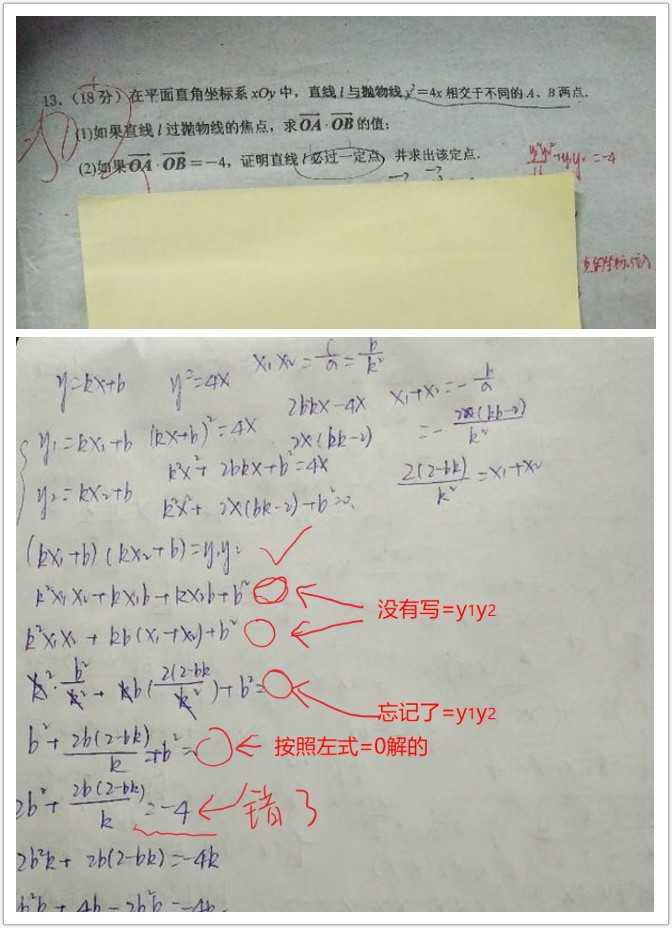 13. (18分) 在平面直角坐标系 xOy 中，直线 l 与抛物线 y²=4x 相交于不同的 A、B 两点.
(1)如果直线 l 过抛物线的焦点，求OA·OB的值;
(2)如果OA·OB=-4，证明直线 l 必过一定点，并求出该定点.
y=kx+b y²=4x x₁x₂=c/a=b²/k²
y₁=kx₁+b (kx+b)²=4x 2bkx-4x x₁+x₂=-b/a
y₂=kx₂+b k²x²+2bkx+b²=4x 2x(bk-2) =-2(kb-2)/k²
k²x²+2x(bk-2)+b²=0 2(2-bk)/k²=x₁+x₂
(kx₁+b)(kx₂+b)=y₁y₂
k²x₁x₂+kx₁b+kx₂b+b²
没有写=y1y2
k²x₁x₂+kb(x₁+x₂)+b²
k²·b²/k²+kb(2(2-bk)/k²)+b²=
忘记了=y1y2
b²+2b(2-bk)/k+b²=
按照左式=0解的
2b²+2b(2-bk)/k=-4
错了
2b²k+2b(2-bk)=-4k